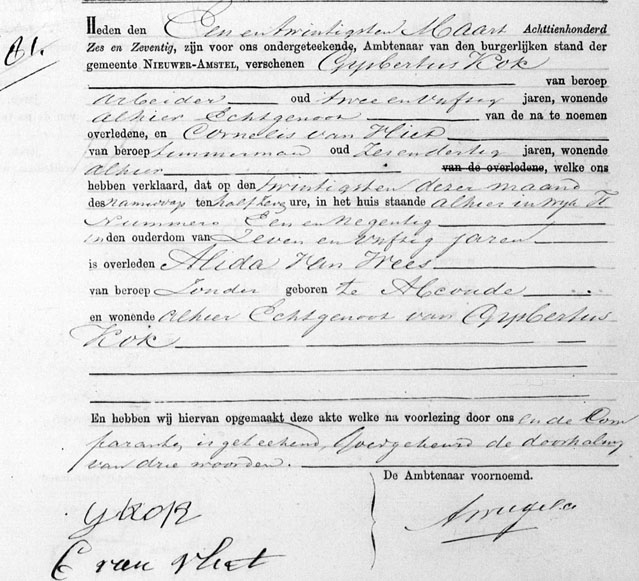 81.
Heden den Een en twintigsten Maart Achttienhonderd
Zes en Zeventig, zijn voor ons ondergeteekende, Ambtenaar van den burgerlijken stand der
gemeente NIEUWER-AMSTEL, verschenen Gysbertus Kok
van beroep
arbeider oud twee en vyftig jaren, wonende
alhier Echtgenoot van de na te noemen
overledene, en Cornelis van Vliet
van beroep timmerman oud Zesendertig jaren, wonende
alhier van de overledene, welke ons
hebben verklaard, dat op den twintigsten dezer maand
des namiddags ten half ure, in het huis staande alhier in wyk H
Nummero Een en negentig
in den ouderdom van Zeven en vyftig jaren
is overleden Alida van Wees
van beroep Zonder geboren te Abcoude
en wonende alhier Echtgenoot van Gysbertus
Kok
En hebben wij hiervan opgemaakt deze akte welke na voorlezing door ons en de Com
paranten is geteekend, goedgekeurd de doorhaling
van drie woorden.
De Ambtenaar voornoemd.
G KOK
C van Vliet